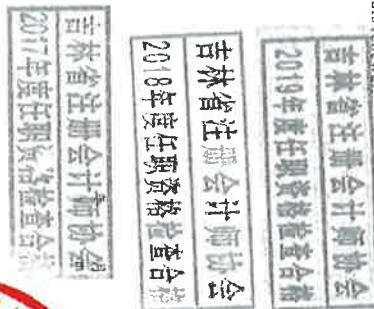 吉林省注册会计师协会
2017年度任职资格检查合格
吉林省注册会计师协会
2018年度任职资格检查合格
吉林省注册会计师协会
2019年度任职资格检查合格